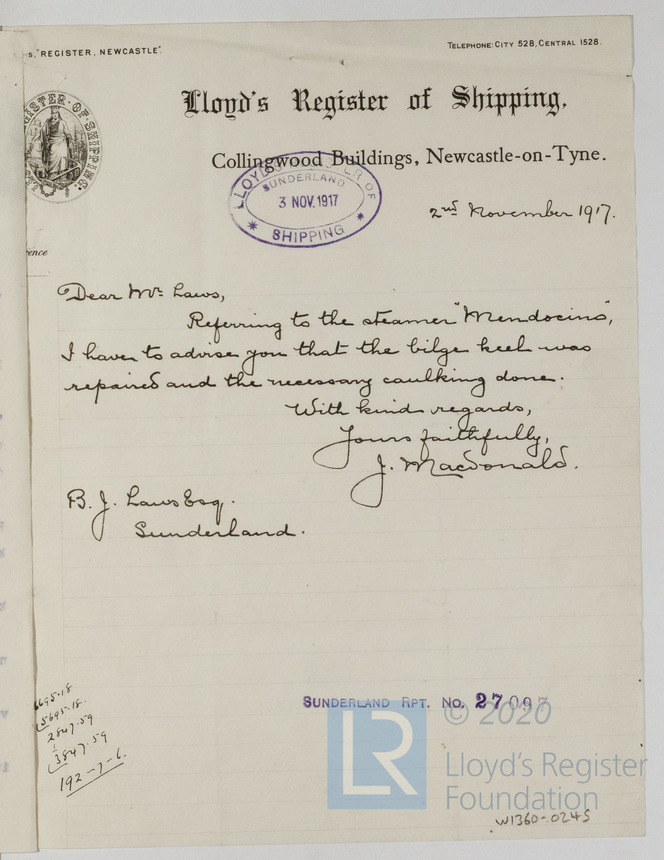 s, "REGISTER, NEWCASTLE".
TELEPHONE: CITY 528, CENTRAL 1528.
Lloyd's Register of Shipping,
Collingwood Buildings, Newcastle-on-Tyne.
SUNDERLAND
3 NOV. 1917
SHIPPING
2nd November 1917.
ence
Dear Mr. Laws,
Referring to the steamer "Mendocino",
I have to advise you that the bilge keel was
repaired and the necessary caulking done.
With kind regards,
Yours faithfully,
J. Macdonald.
B. J. Laws Esq.
Sunderland.
5695.18.
2847.59
3847.59
192-7-6.
SUNDERLAND RPT. No. 27097
LR
© 2020
Lloyd's Register
Foundation
W1360-0245